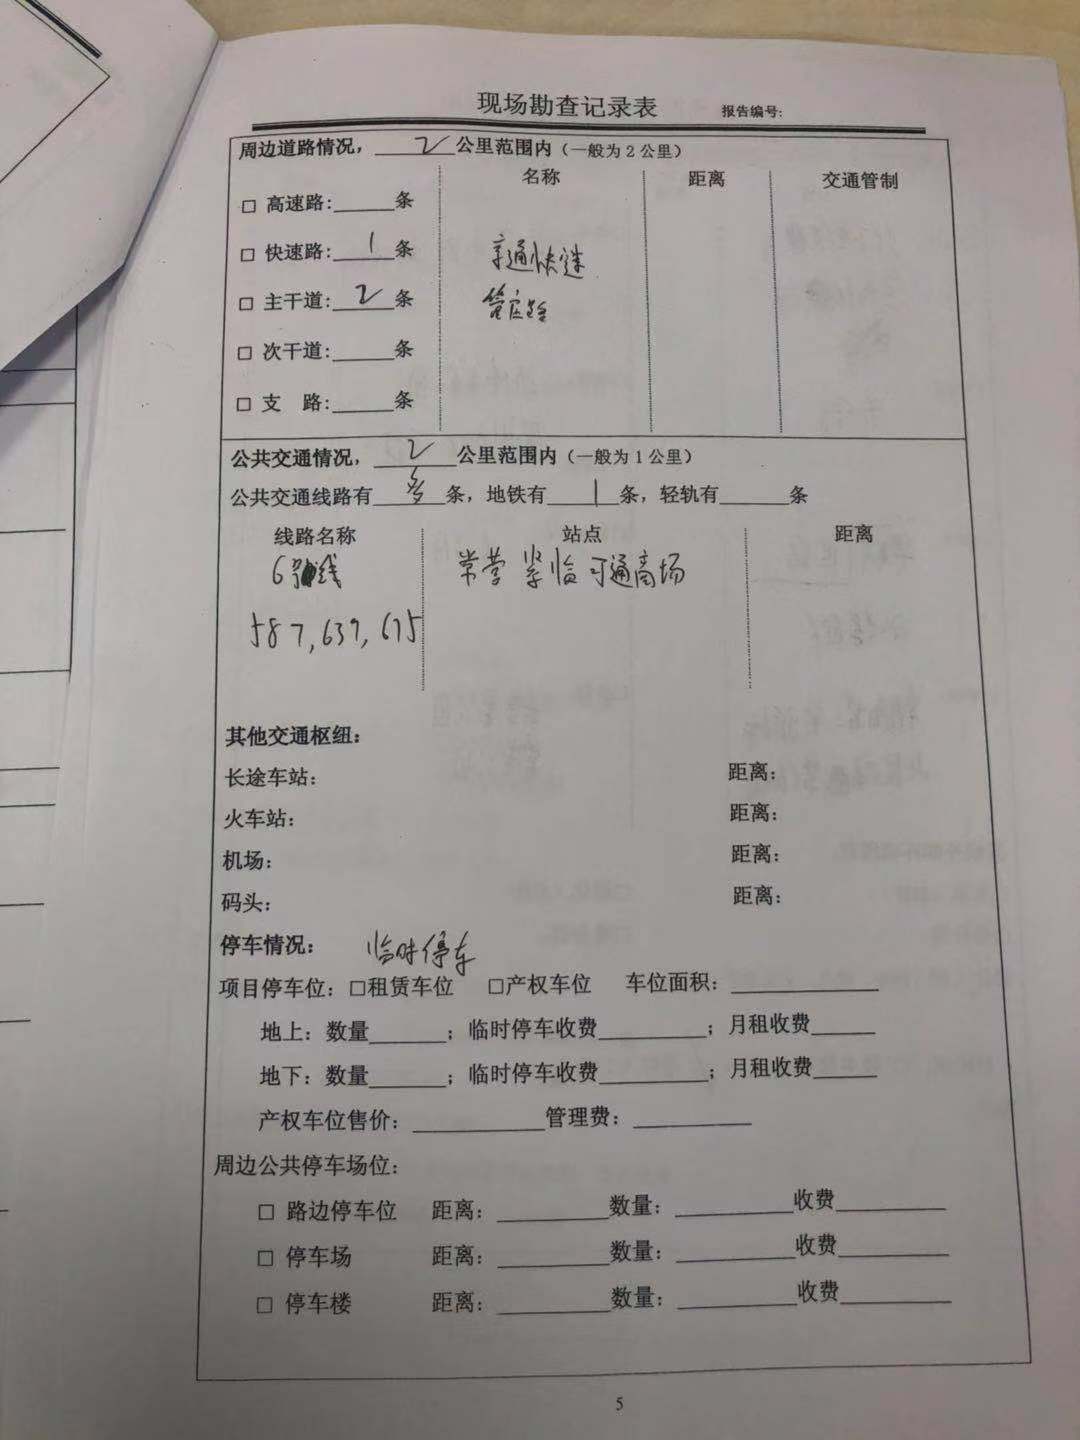 现场勘查记录表 报告编号:
周边道路情况，2公里范围内（一般为2公里）
名称 距离 交通管制
□ 高速路:______条
□ 快速路: 1 条 京通快速
□ 主干道: 2 条 管庄路
□ 次干道:______条
□ 支 路:______条
公共交通情况，2公里范围内（一般为1公里）
公共交通线路有 多 条，地铁有 1 条，轻轨有______条
线路名称 站点 距离
6号线 常营 紧临 可通商场
587,639,675
其他交通枢纽：
长途车站： 距离：
火车站： 距离：
机场： 距离：
码头： 距离：
停车情况： 临时停车
项目停车位：□租赁车位 □产权车位 车位面积：______
地上：数量______；临时停车收费______；月租收费______
地下：数量______；临时停车收费______；月租收费______
产权车位售价：______管理费：______
周边公共停车场位：
□ 路边停车位 距离：______数量：______收费______
□ 停车场 距离：______数量：______收费______
□ 停车楼 距离：______数量：______收费______
5